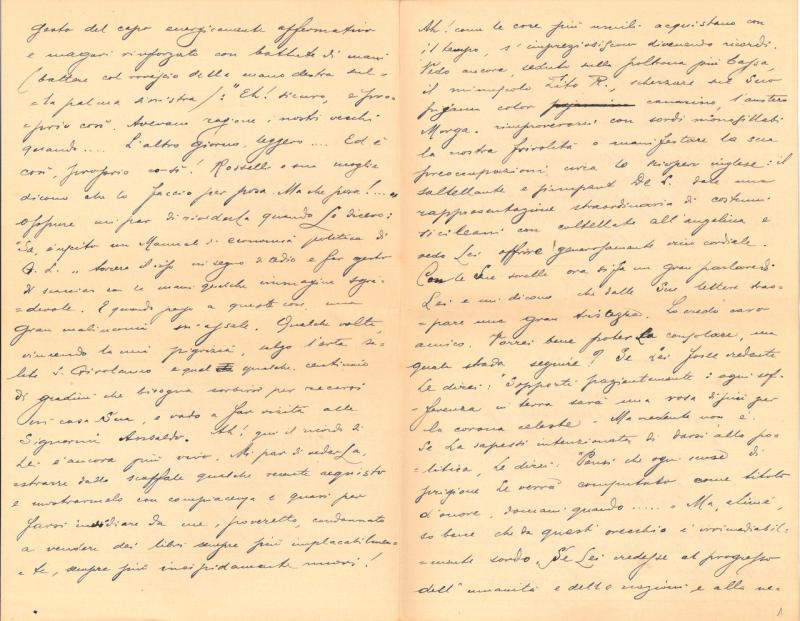 gesto del capo energicamente affermativo
e magari rinforzato con battute di mani
(battere col rovescio della mano destra sul-
=la palma sinistra): "Eh! sicuro, è pro=
=prio così. Avevano ragione i nostri vecchi
quando.... L'altro giorno, leggevo.... Ed è
così, proprio così! Rosselli e sua moglie
dicono che lo faccio per posa. Ma che posa!...."
oppure mi par di rivederla quando Le dicevo:
"Sa, è uscito un Manuale di economia politica di
G. L." torcere il viso in segno di tedio e far gesto
di scacciar con le mani qualche immagine sgra=
=devole. E quando penso a queste cose una
gran malinconia m'assale. Qualche volta,
vincendo la mia pigrizia, salgo l'erta sa=
lita S. Girolamo e quel qualche centinaio
di gradini che bisogna sorbirsi per recarsi
in casa Sua, e vado a far visita alle
Signorine Ansaldo. Ah! qui il ricordo di
Lei è ancora più vivo. Mi par di vederLa,
estrarre dallo scaffale qualche recente acquisto
e mostrarmelo con compiacenza e quasi per
farsi invidiare da me, poveretto, condannato
a vendere dei libri sempre più implacabilmen=
=te, sempre più insipidamente nuovi!
Ah! come le cose più umili acquistano con
il tempo, s'impreziosiscono divenendo ricordi.
Vedo ancora, seduto sulla poltrona più bassa,
il minuscolo Tito R., scherzare sul Suo
pigiama color canarino, l'austero
Morga. rimproverarci con sordi monosillabi
la nostra frivolità o manifestare la sua
preoccupazione circa lo sciopero inglese: il
saltellante e pimpant De L. dare una
rappresentazione straordinaria di costumi
siciliani con coltellate all'angelina e
vedo Lei offrire generosamente vino cordiale.
Con le Sue sorelle ora si fa un gran parlare di
Lei e mi dicono che dalle Sue lettere tras=
=pare una gran tristezza. Lo credo caro
amico. Vorrei bene poterLa consolare, ma
quale strada seguire? Se Lei fosse credente
Le direi: "Sopporti pazientemente: ogni sof=
=ferenza in terra sarà una rosa di più per
la corona celeste". Ma credente non è.
Se La sapessi intenzionata di darsi alla po=
=litica, Le direi: "Pensi che ogni mese di
prigione Le verrà computato come titolo
d'onore, domani quando......" Ma, ahimé,
so bene che da questo orecchio è irrimediabil=
=mente sordo. Se Lei credesse al progresso
dell'umanità e delle nazioni e alla ne=